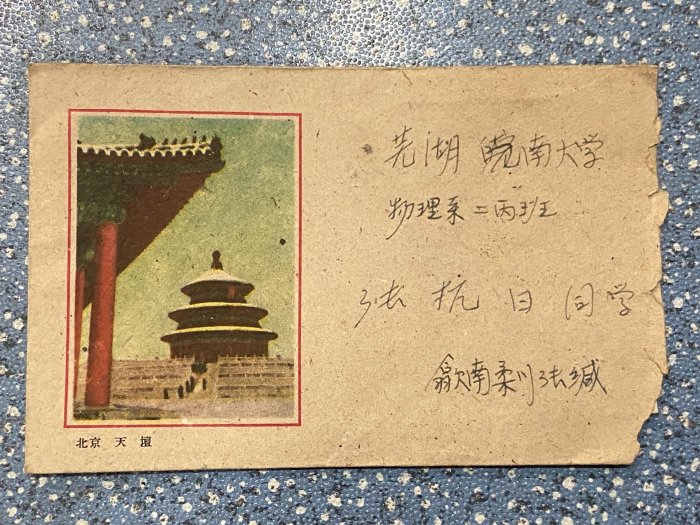 芜湖 皖南大学
物理系二丙班
张抗日同学
歙南柔川张缄
北京 天壇